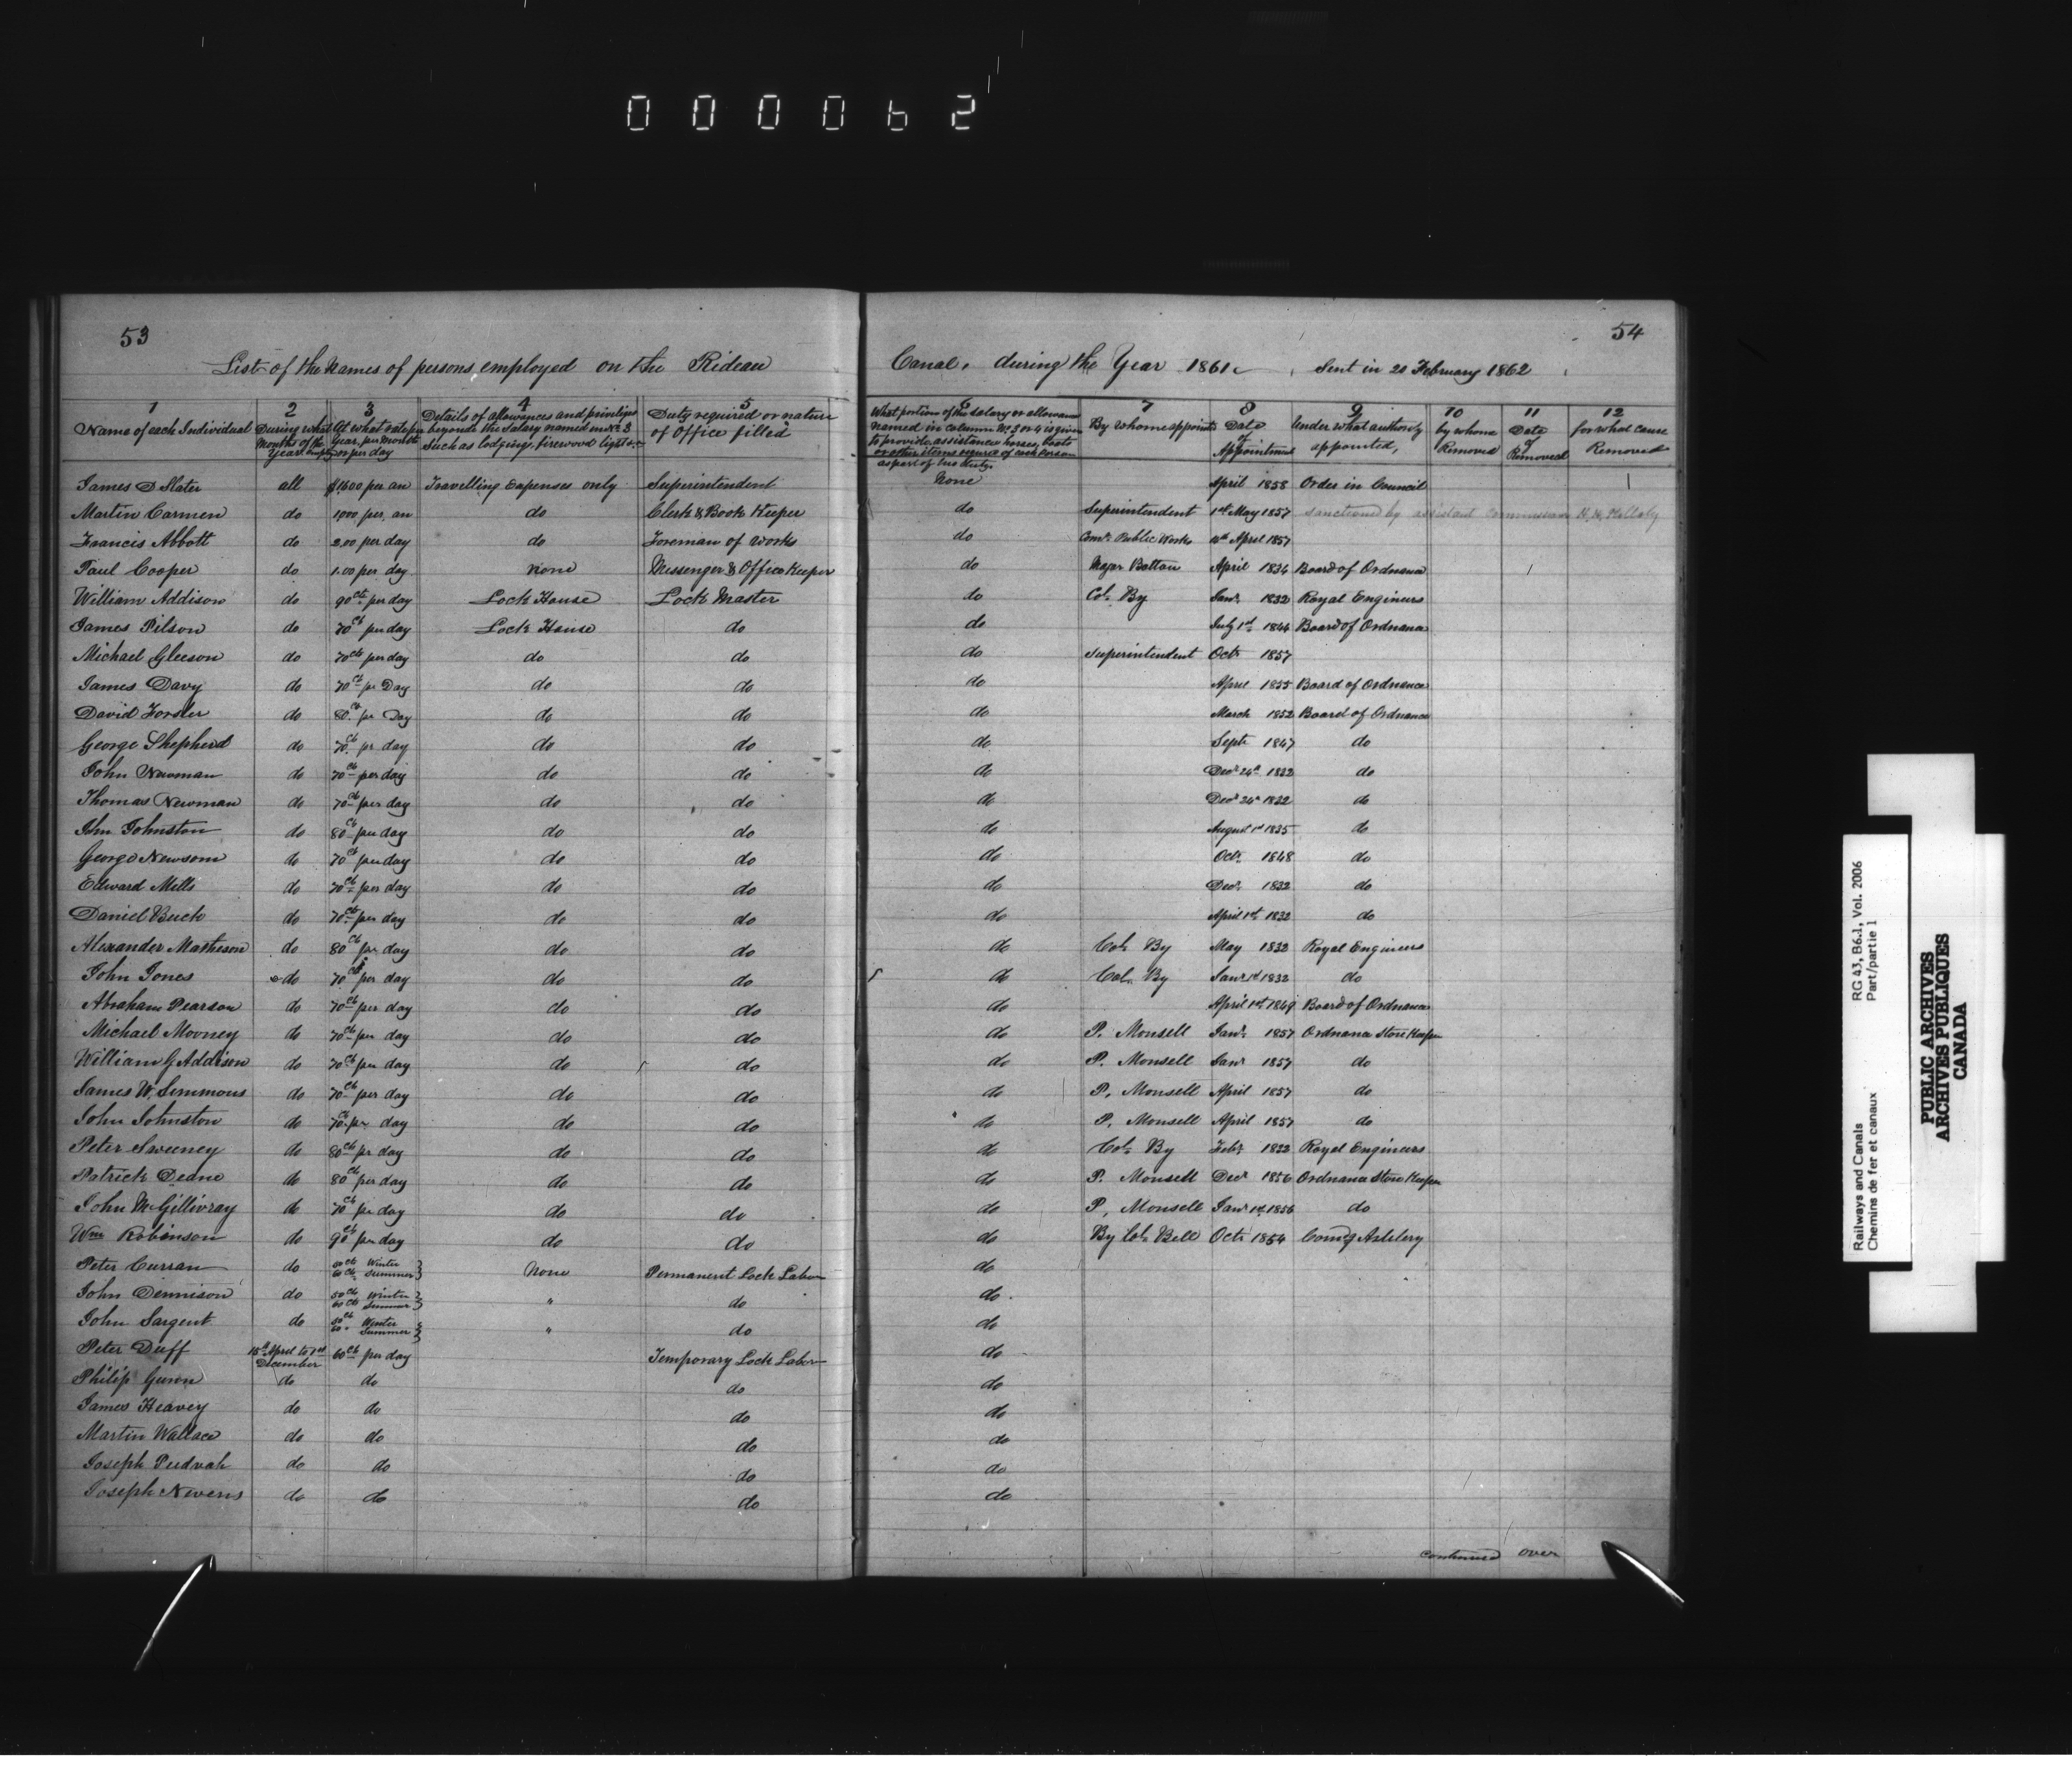 000062
53
54
List of the Names of persons employed on the Rideau Canal, during the Year 1861. Sent in 20 February 1862
1 2 3 4 5 6 7 8 9 10 11 12
Name of each Individual
During what Months of the Year employ
At what rate per Year, per Month or per day
Details of allowances and privileges beyond the Salary named in No 3 Such as lodging, firewood light &c
Duty required or nature of Office filled
What portion of the salary or allowance named in column No 3 or 4 is given to provide assistance horses, boats or other items required of each person as part of his duty.
By whom appointed
Date of Appointment
Under what authority appointed,
by whom Removed
Date of Removed
for what cause Removed
James D Slater all $1600 per an Travelling Expenses only Superintendent None April 1858 Order in Council
Martin Carmen do 1000 per an do Clerk & Book Keeper do Superintendent 1st May 1857 sanctioned by assistant Commissioner
Francis Abbott do 2.00 per day do Foreman of Works do Comr Public Works April 1857
Paul Cooper do 1.00 per day None Messenger & Office Keeper do Major Bolton April 1834 Board of Ordnance
William Addison do 90 cts per day Lock House Lock Master do Col. By Janr 1832 Royal Engineers
James Pilson do 70 cts per day Lock House do do July 1st 1844 Board of Ordnance
Michael Gleeson do 70 cts per day do do do Superintendent Octr 1857
James Davy do 70 ct pr Day do do do April 1855 Board of Ordnance
David Forster do 80 cts pr Day do do do March 1852 Board of Ordnance
George Shepherd do 70 cts pr day do do do Septr 1847 do
John Newman do 70 cts per day do do do Decr 24th 1832 do
Thomas Newman do 70 cts per day do do do Decr 24th 1832 do
John Johnston do 80 cts per day do do do August 1st 1835 do
George Newsom do 70 cts per day do do do Octr 1848 do
Edward Mills do 70 cts per day do do do Decr 1832 do
Daniel Buck do 70 cts per day do do do April 1st 1832 do
Alexander Matheson do 80 cts per day do do do Col. By May 1832 Royal Engineers
John Jones do 70 cts per day do do do Col. By Janr 1st 1832 do
Abraham Pearson do 70 cts per day do do do April 1st 1849 Board of Ordnance
Michael Mooney do 70 cts per day do do do P. Monsell Janr 1857 Ordnance Store Keeper
William G Addison do 70 cts per day do do do P. Monsell Janr 1857 do
James W. Simmons do 70 cts per day do do do P. Monsell April 1857 do
John Johnston do 70 cts per day do do do P. Monsell April 1857 do
Peter Sweeney do 80 cts per day do do do Col. By Febr 1832 Royal Engineers
Patrick Deane do 80 cts per day do do do P. Monsell Decr 1856 Ordnance Store Keeper
John McGillivray do 70 cts per day do do do P. Monsell Janr 1st 1856 do
Wm Robinson do 90 cts per day do do do By Col. Bell Octr 1854 Comg Artillery
Peter Curran do 50 cts Winter 60 cts Summer None Permanent Lock Labor do
John Dennison do 50 cts Winter 60 cts Summer " do do
John Sargent do 50 cts Winter 60 " Summer " do do
Peter Duff 15th April to 1st December 60 cts per day Temporary Lock Labor do
Philip Gunn do do do do
James Heavey do do do do
Martin Wallace do do do do
Joseph Pudvah do do do do
Joseph Nevens do do do do
continued over
Railways and Canals
Chemins de fer et canaux
RG 43, B6.1, Vol. 2006
Part/partie 1
PUBLIC ARCHIVES
ARCHIVES PUBLIQUES
CANADA